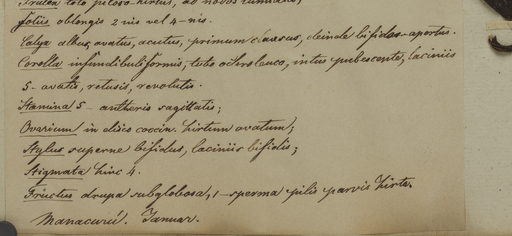 Frutex toto piloso-hirtus, ad novos ramulos,
foliis oblongis 2-nis vel 4-nis.
Calyx albus, ovatus, acutus, primum clausus, deinde bifidus-apertus.
Corolla infundibuliformis, tubo ochroleuco, intus pubescente, laciniis
5- ovatis, retusis, revolutis.
Stamina 5 - antheris sagittatis;
Ovarium in disco coccin. hirtum ovatum;
Stylus superne bifidus, laciniis bifidis;
Stigmata hinc 4.
Fructus drupa subglobosa, 1-sperma pilis parvis hirta.
Manacurú. Januar.